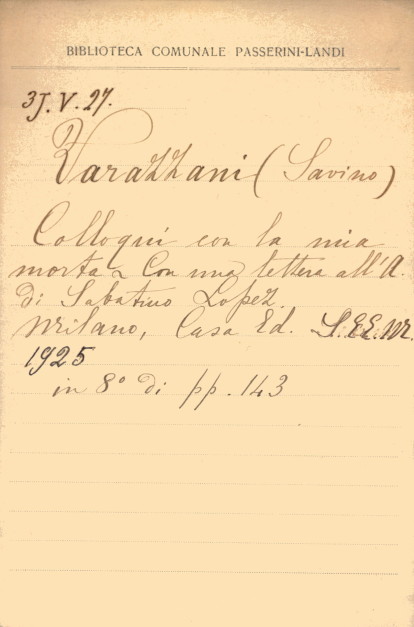 BIBLIOTECA COMUNALE PASSERINI-LANDI
3J.V.27.
Varazzani (Savino)
Colloqui con la mia
morta ~ Con una lettera all'A.
di Sabatino Lopez.
Milano, Casa Ed. S.E.E.M.
1925
in 8° di pp. 143